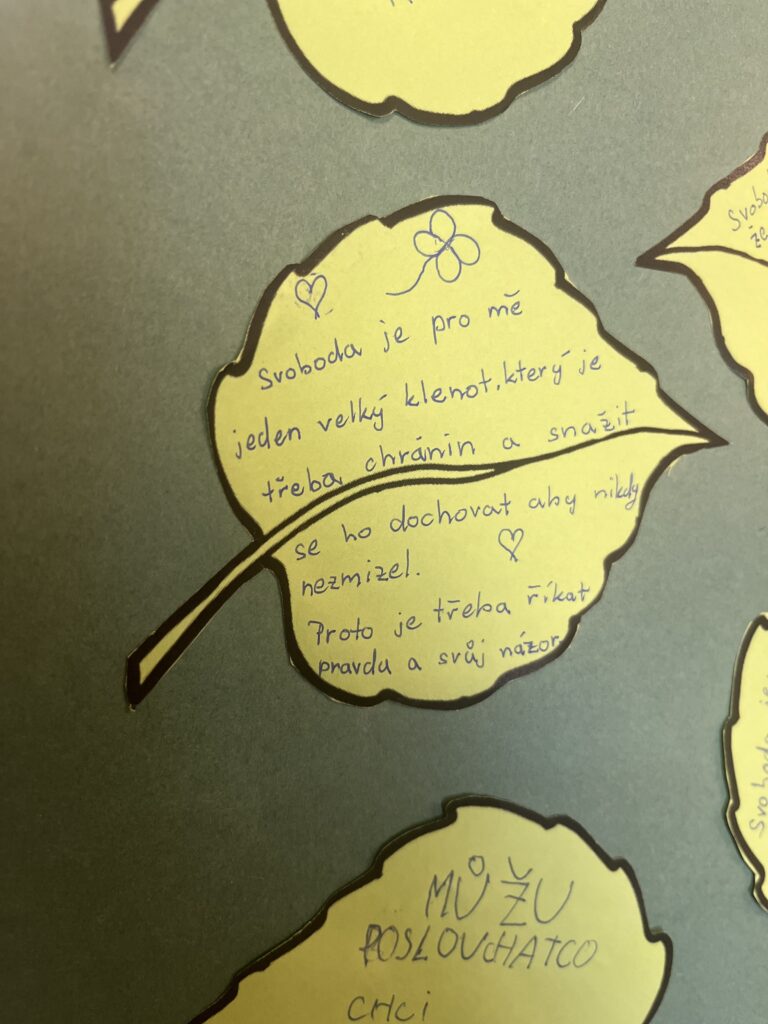 Svobo
že
Svoboda je pro mě
jeden velký klenot, který je
třeba chránin a snažit
se ho dochovat aby nikdy
nezmizel.
Proto je třeba říkat
pravdu a svůj názor
Svoboda je
MŮŽU
POSLOUCHAT CO
CHCI